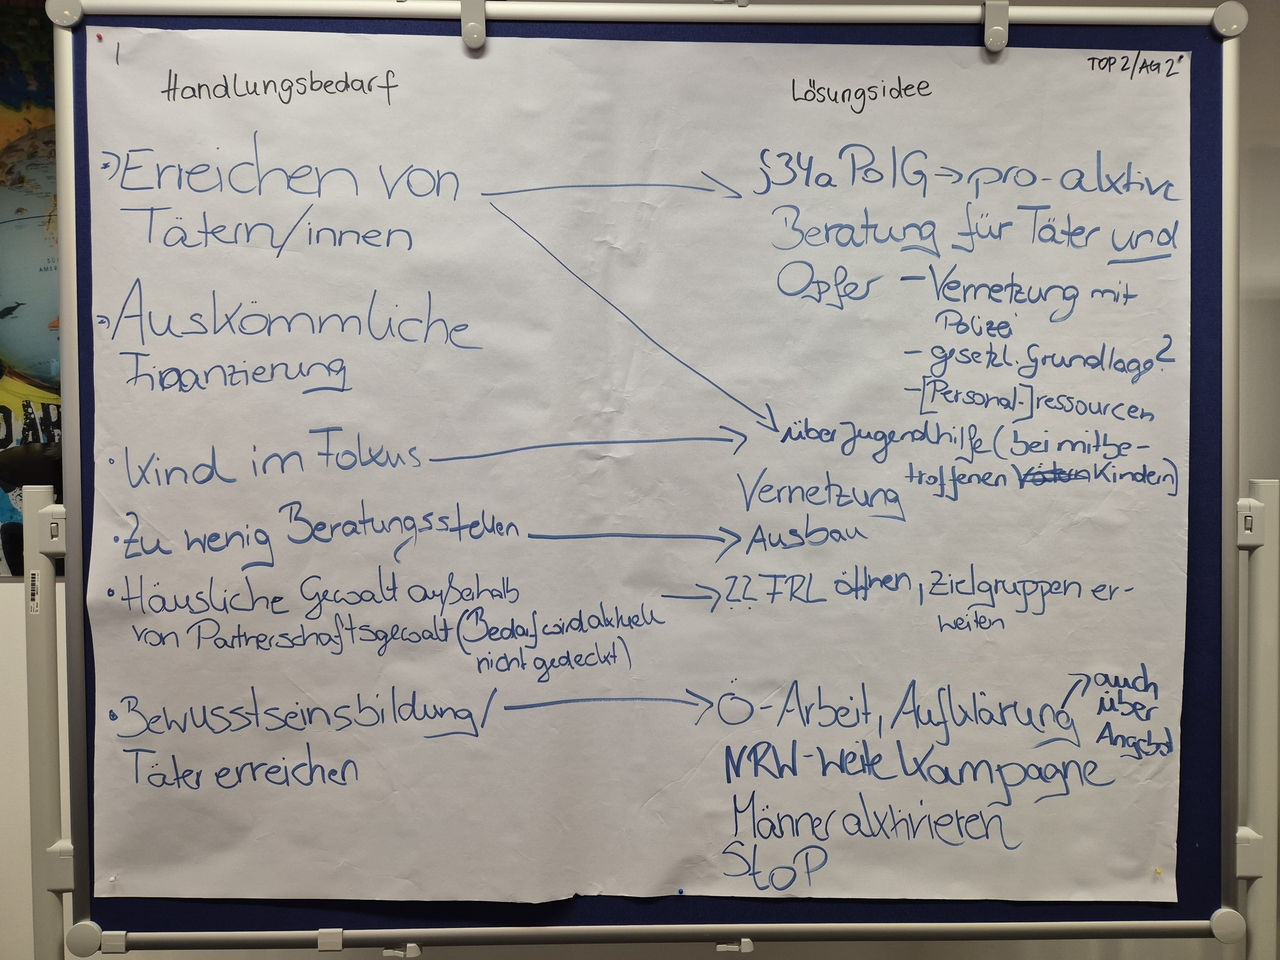 1
TOP 2/AG 2
Handlungsbedarf
Erreichen von
Tätern/innen
Auskömmliche
Finanzierung
· Kind im Fokus
· Zu wenig Beratungsstellen
· Häusliche Gewalt außerhalb
von Partnerschaftsgewalt (Bedarf wird aktuell
nicht gedeckt)
· Bewusstseinsbildung/
Täter erreichen
Lösungsidee
§34a PolG → pro-aktive
Beratung für Täter und
Opfer – Vernetzung mit
Polizei
– gesetzl. Grundlage?
– [Personal-]ressourcen
über Jugendhilfe (bei mitbe-
troffenen Vätern Kindern)
Vernetzung
Ausbau
FRL öffnen, Zielgruppen er-
weitern
Ö-Arbeit, Aufklärung
auch
über
Angebot
NRW-weite Kampagne
Männer aktivieren
StoP